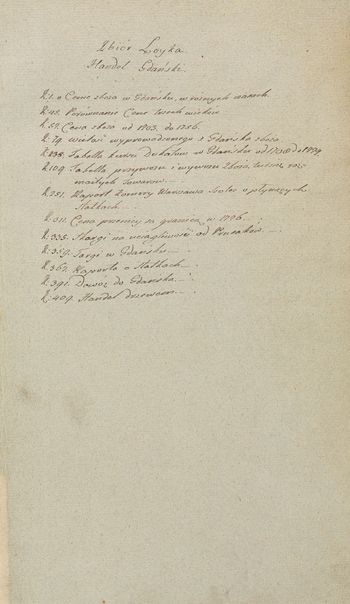 Zbiór Łoyka.
Handel Gdański.
K: 1. o Cenie zboża w Gdańsku, w różnych czasach.
K: 48. Porównanie Cen trzech wieków
K: 59. Cena zboża od 1703. do 1756.
K: 79. Wielość wyprowadzonego z Gdańska zboża
Tabella kursu Dukatów w Gdańsku od
K: 109. Tabella przywozu i wywozu Zboża, tudzież roz
maitych towarów
K: 251. Raport Komory Warszawa Solec o płynących
Statkach
K: 311. Cena pszenicy za granicą w 1776.
K: 335. Skargi na uciążliwości od Prusaków
K: 359. Targi w Gdańsku
K: 362. Raporta o Statkach
K: 391. Dowóz do Gdańska
K: 409. Handel drzewem